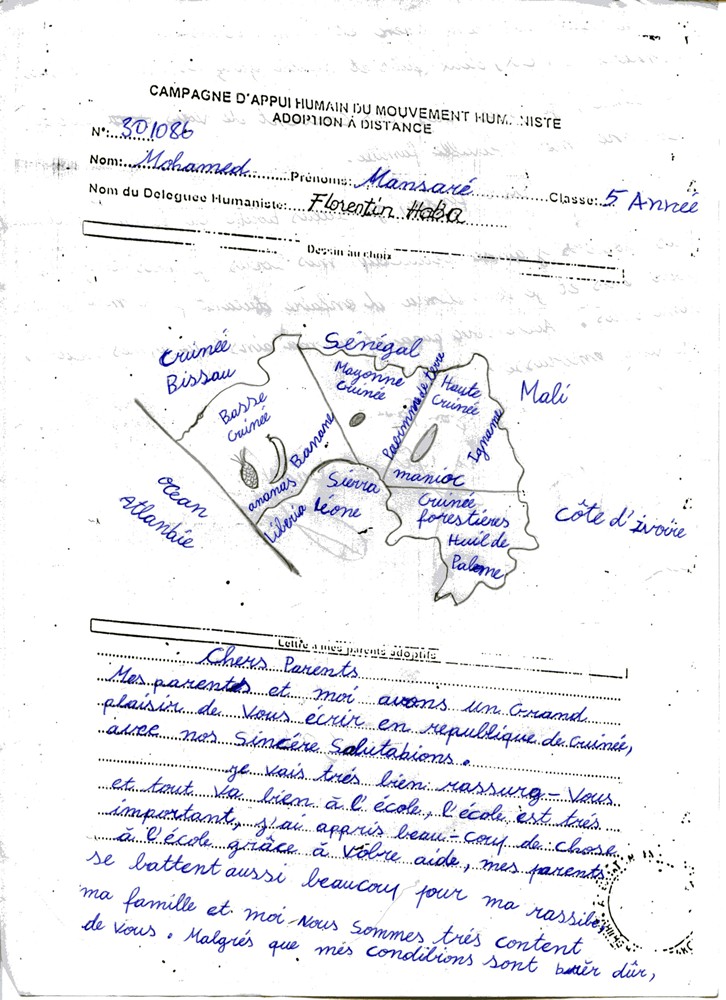 CAMPAGNE D'APPUI HUMAIN DU MOUVEMENT HUMANISTE
ADOPTION À DISTANCE
N°: 301086
Nom: Mohamed Prénoms: Mansaré Classe: 5 Année
Nom du Deleguee Humaniste: Florentin Haba
Dessin au choix
Guinée
Bissau
Sénégal
Mali
Basse
Guinée
Moyonne
Guinée
Haute
Guinée
Igname
ananas
Banane
manioc
Océan
Atlantie
Libéria
Siérra
léone
Guinée
forestières
Huil de
Palome
côte d'ivoire
Lettre a mes parents adoptifs
Chers Parents
Mes parents et moi avons un Grand
plaisir de vous écrir en republique de Guinée,
avec nos Sincére Salutations.
je vais trés bien rassurg-Vous
et tout va bien à l'école, l'école est trés
important, j'ai appris beau-coup de chose
à l'école grâce à vôtre aide, mes parents
se battent aussi beaucoup pour ma
ma famille et moi Nous sommes trés content
de vous. Malgrés que més conditions sont dûr,